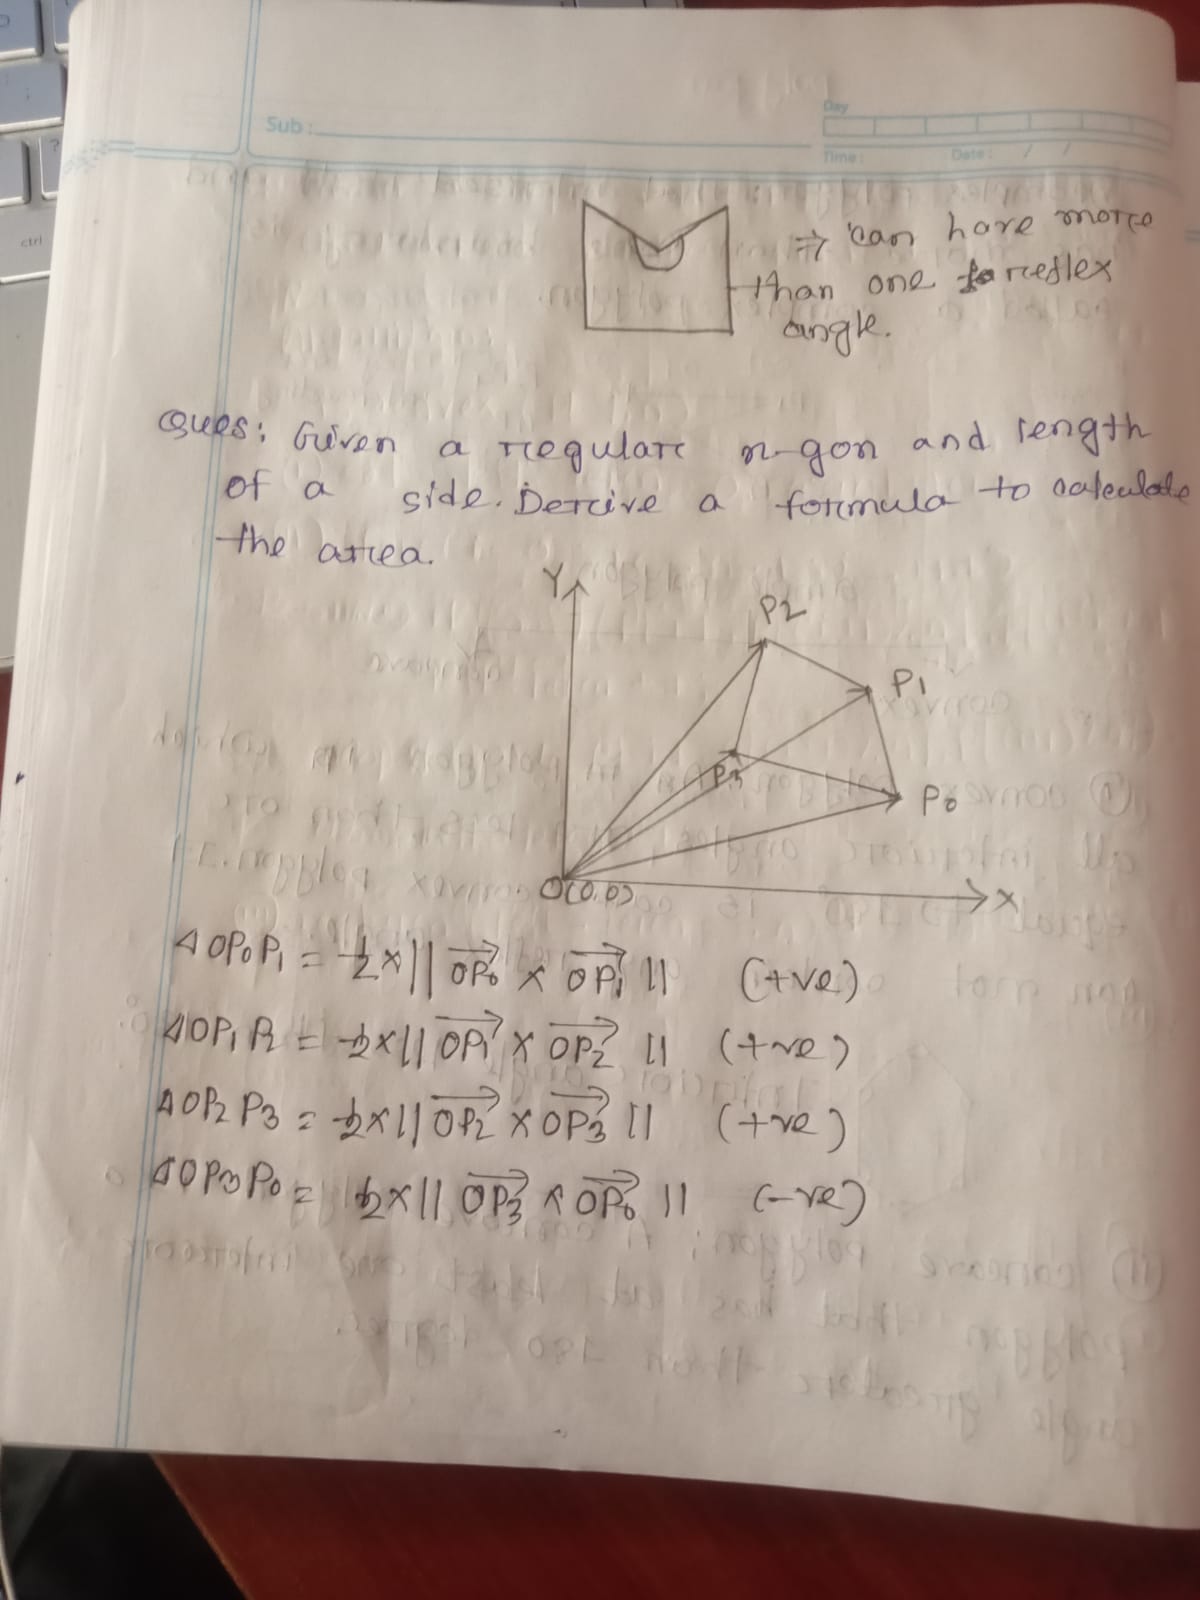 Sub:
Day
Time: Date: / /
⇒ can have more
than one reflex
angle.
Ques: Given a regular n-gon and length
of a side. Derive a formula to calculate
the area.
Y
P2
P1
P3
P0
O(0,0)
X
ΔOP₀P₁ = ½ × ||OP₀ × OP₁|| (+ve)
ΔOP₁P₂ = ½ × ||OP₁ × OP₂|| (+ve)
ΔOP₂P₃ = ½ × ||OP₂ × OP₃|| (+ve)
ΔOP₃P₀ = ½ × ||OP₃ × OP₀|| (-ve)
ctrl